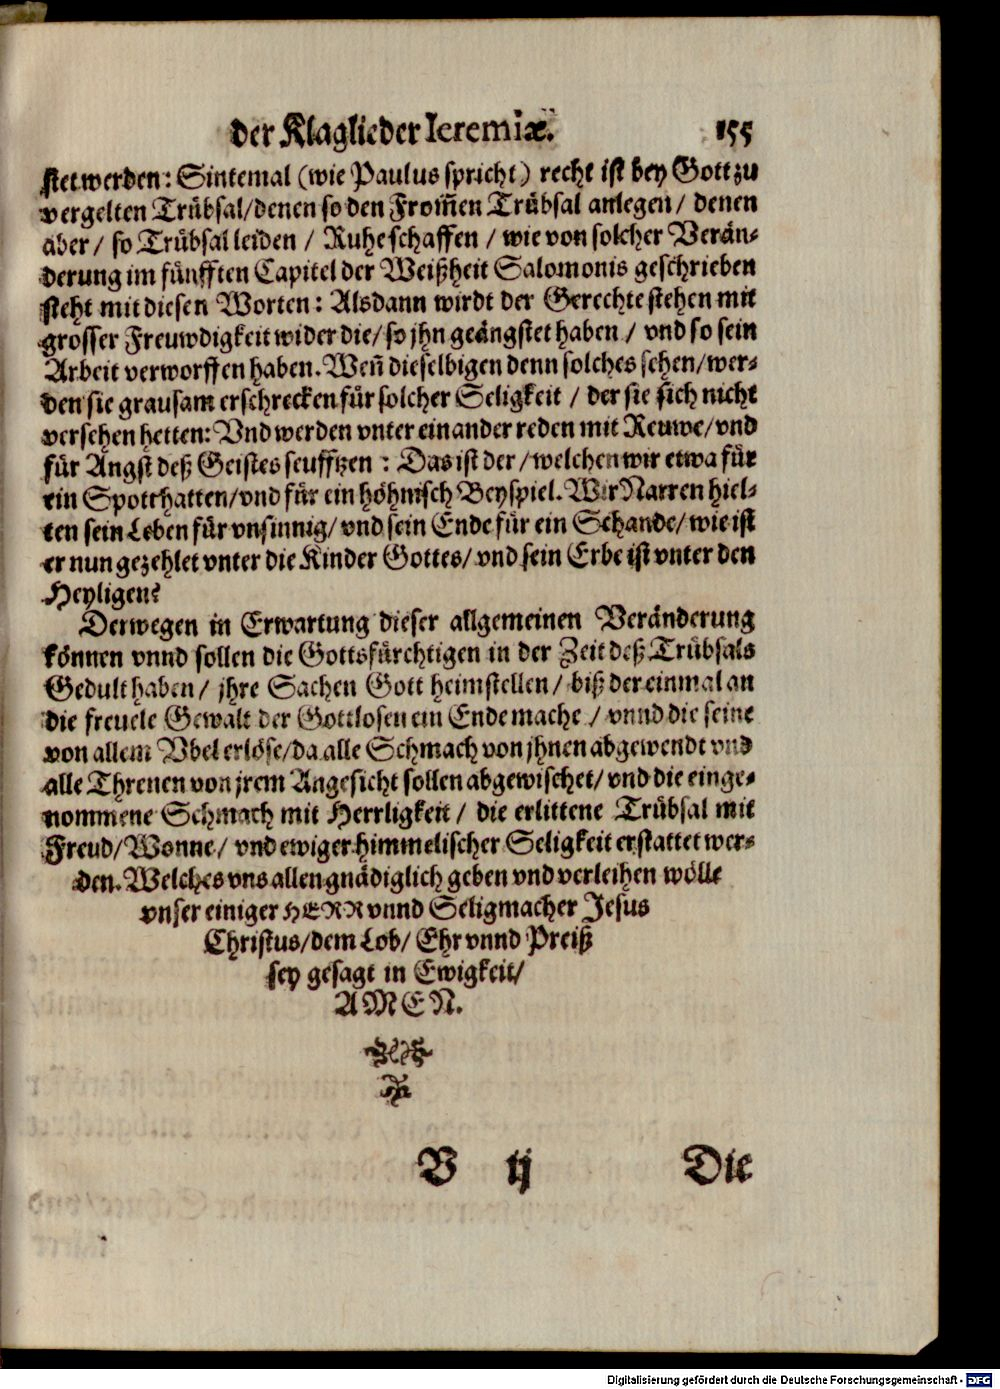 der Klaglieder Ieremiæ. 155
stet werden: Sintemal (wie Paulus spricht) recht ist bey Gott zu
vergelten Trübsal/denen so den From̃en Trübsal anlegen/ denen
aber/ so Trübsal leiden / Ruhe schaffen / wie von solcher Verän-
derung im fünfften Capitel der Weißheit Salomonis geschrieben
steht mit diesen Worten: Alsdann wirdt der Gerechte stehen mit
grosser Freuwdigkeit wider die/ so jhn geängstet haben / vnd so sein
Arbeit verworffen haben. Weñ dieselbigen denn solches sehen/wer-
den sie grausam erschrecken für solcher Seligkeit / der sie sich nicht
versehen hetten: Vnd werden vnter einander reden mit Reuwe/vnd
für Angst deß Geistes seufftzen : Das ist der /welchen wir etwa für
ein Spott hatten/vnd für ein höhnisch Beyspiel. Wir Narren hiel-
ten sein Leben für vnsinnig/ vnd sein Ende für ein Schande/ wie ist
er nun gezehlet vnter die Kinder Gottes/ vnd sein Erbe ist vnter den
Heyligen?
Derwegen in Erwartung dieser allgemeinen Veränderung
können vnnd sollen die Gottsfürchtigen in der Zeit deß Trübsals
Gedult haben/ jhre Sachen Gott heimstellen/ biß der einmal an
die freuele Gewalt der Gottlosen ein Ende mache / vnnd die seine
von allem Vbel erlöse/da alle Schmach von jhnen abgewendt vnd
alle Threnen von jrem Angesicht sollen abgewischet/ vnd die einge-
nommene Schmach mit Herrligkeit/ die erlittene Trübsal mit
Freud/Wonne/ vnd ewiger himmelischer Seligkeit erstattet wer-
den. Welches vns allen gnädiglich geben vnd verleihen wölle
vnser einiger HERR vnnd Seligmacher Jesus
Christus/dem Lob/ Ehr vnnd Preiß
sey gesagt in Ewigkeit/
AMEN.
V ij Die
Digitalisierung gefördert durch die Deutsche Forschungsgemeinschaft - DFG